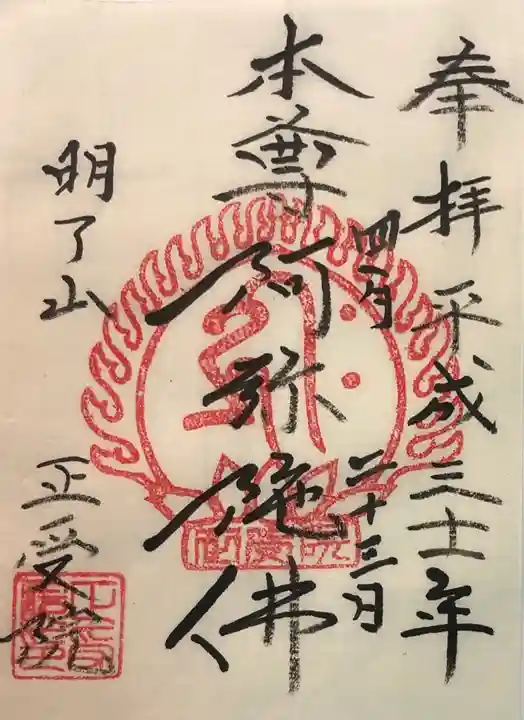 奉拝 平成三十一年
四月二十三日
本尊 阿弥陀佛
明了山
正受院